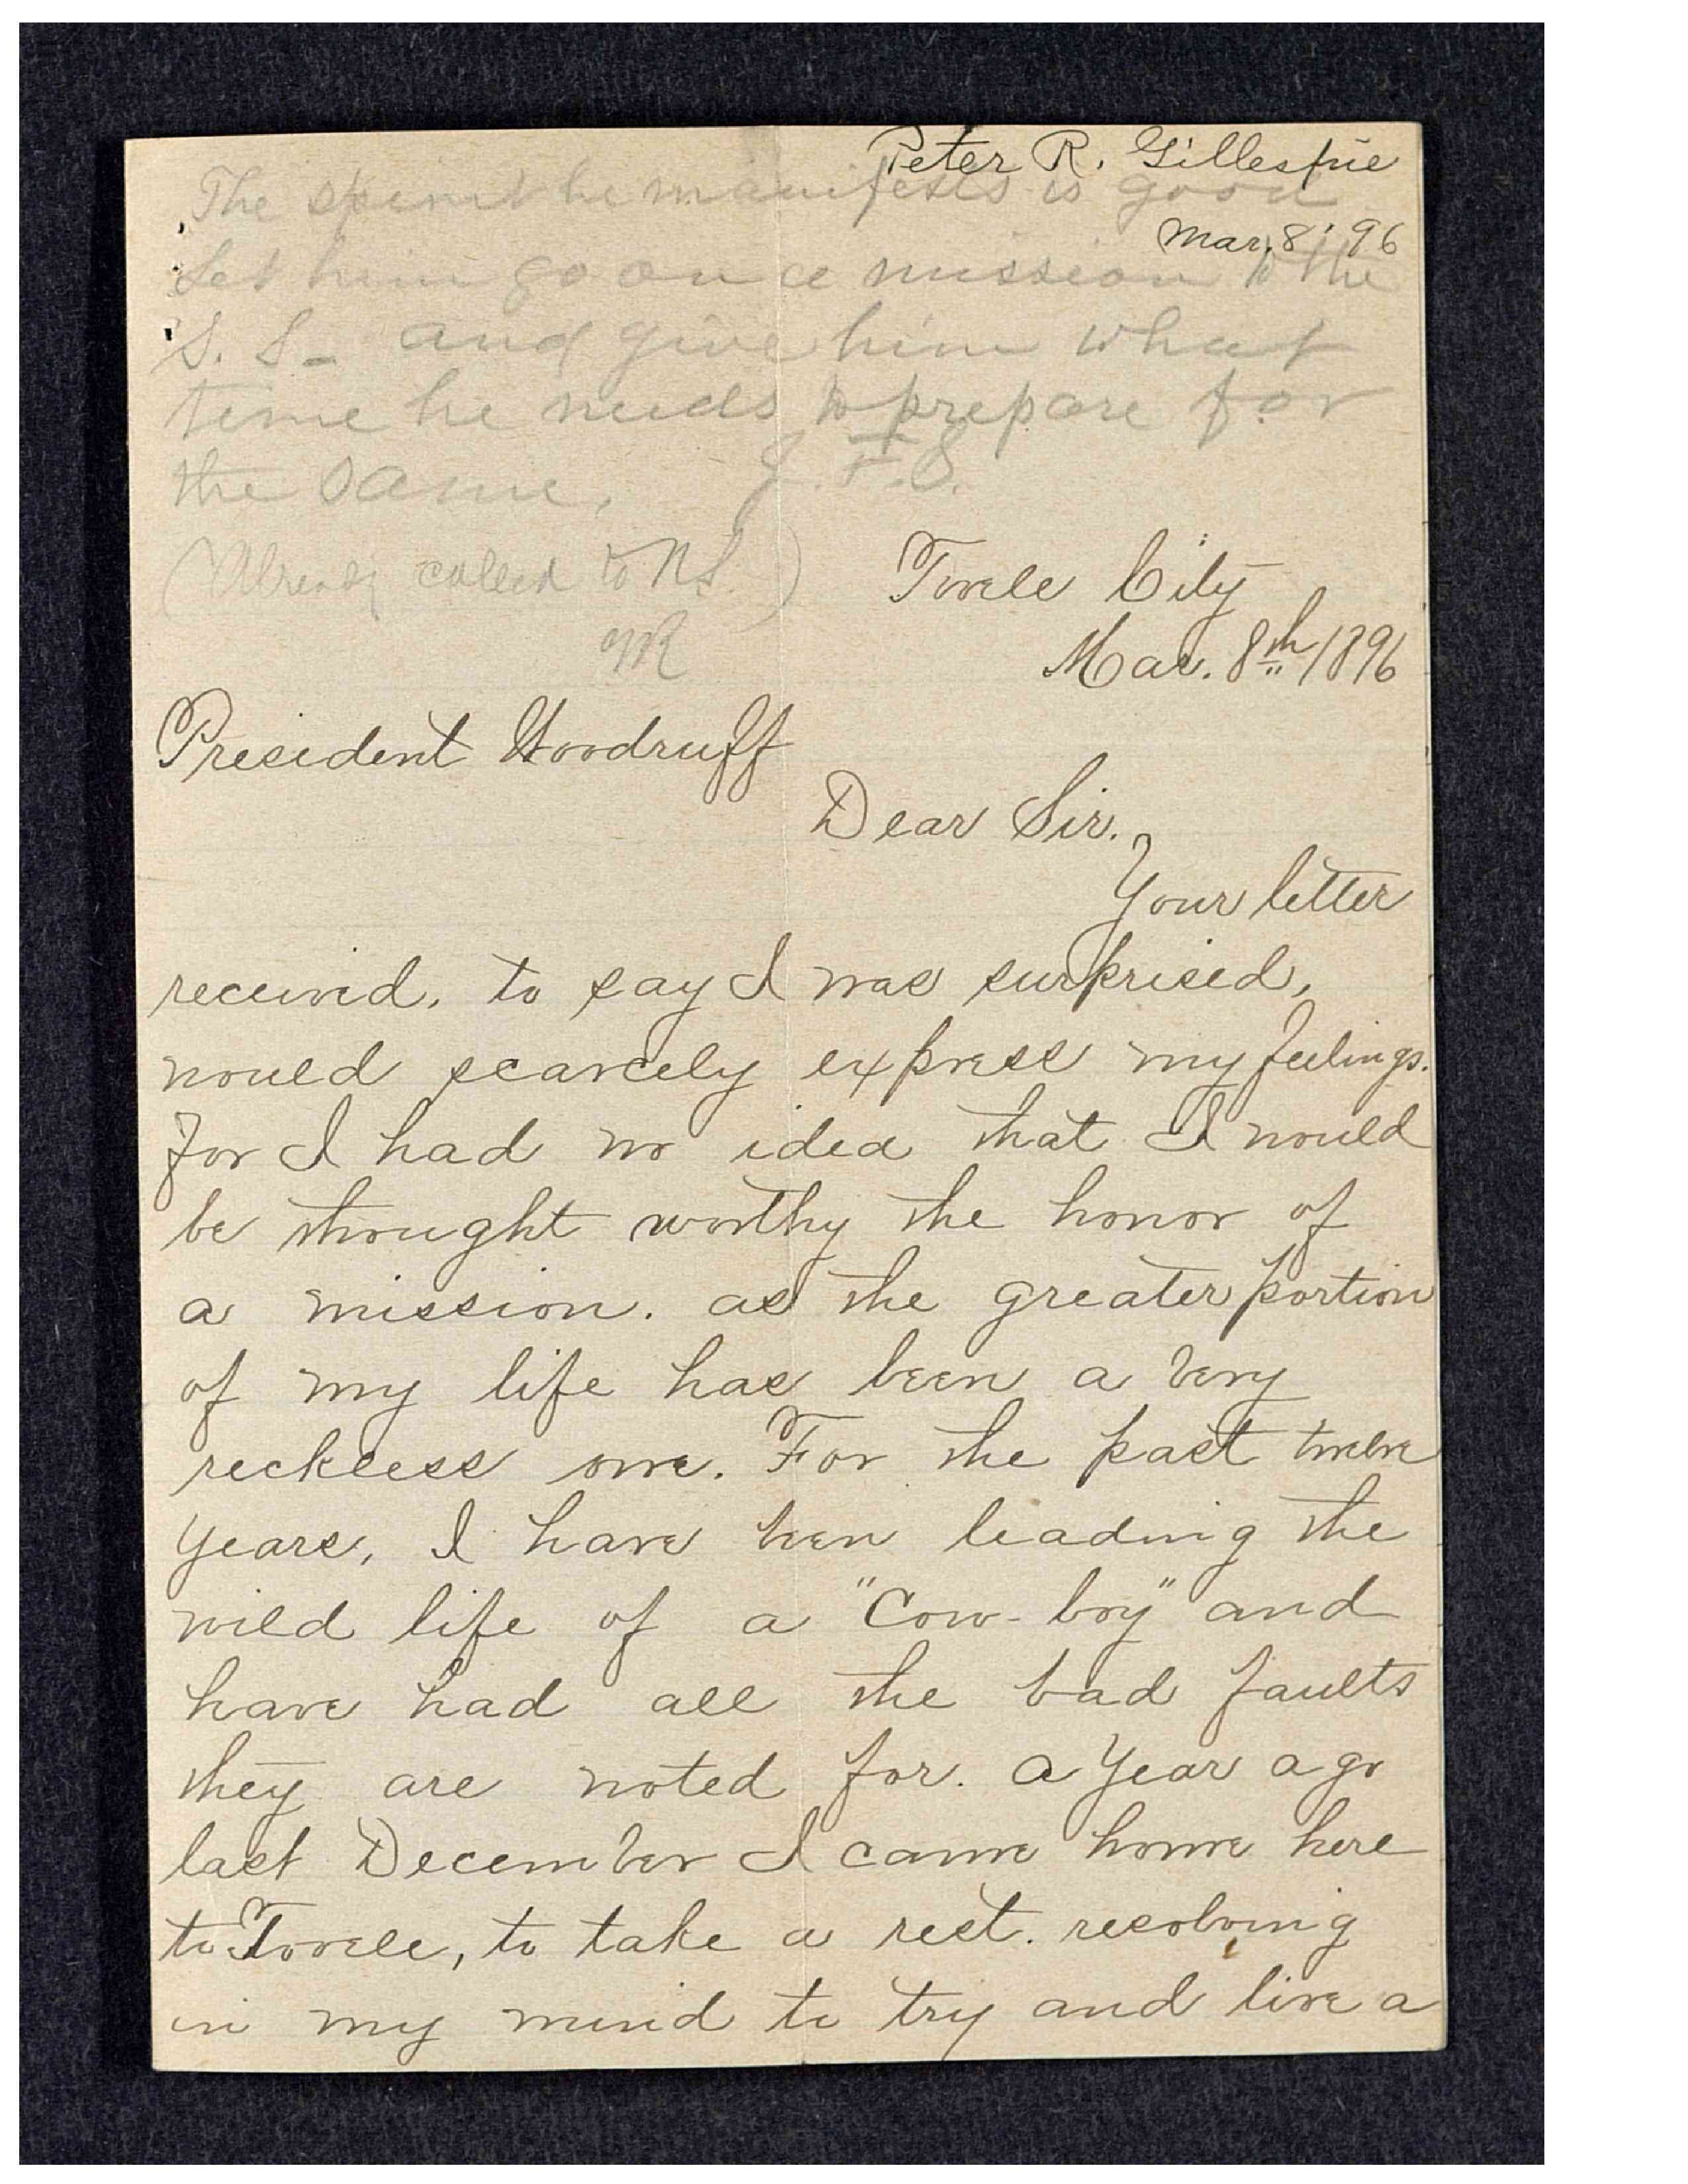 Peter R. Gillespie
The spirit he manifests is good
Mar. 8, '96
Let him go on a mission to the
S. S. - and give him what
time he needs to prepare for
the same, J. F. S.
(Already called to NS.)
Tooele City
Mar. 8th 1896
President Woodruff
Dear Sir.
Your letter
received. to say I was surprised,
would scarcely express my feelings.
for I had no idea that I would
be thought worthy the honor of
a mission. as the greater portion
of my life has been a very
reckless one. For the past twelve
years, I have been leading the
wild life of a "Cow-boy" and
have had all the bad faults
they are noted for. a year ago
last December I came home here
to Tooele, to take a rest. resolving
in my mind to try and live a